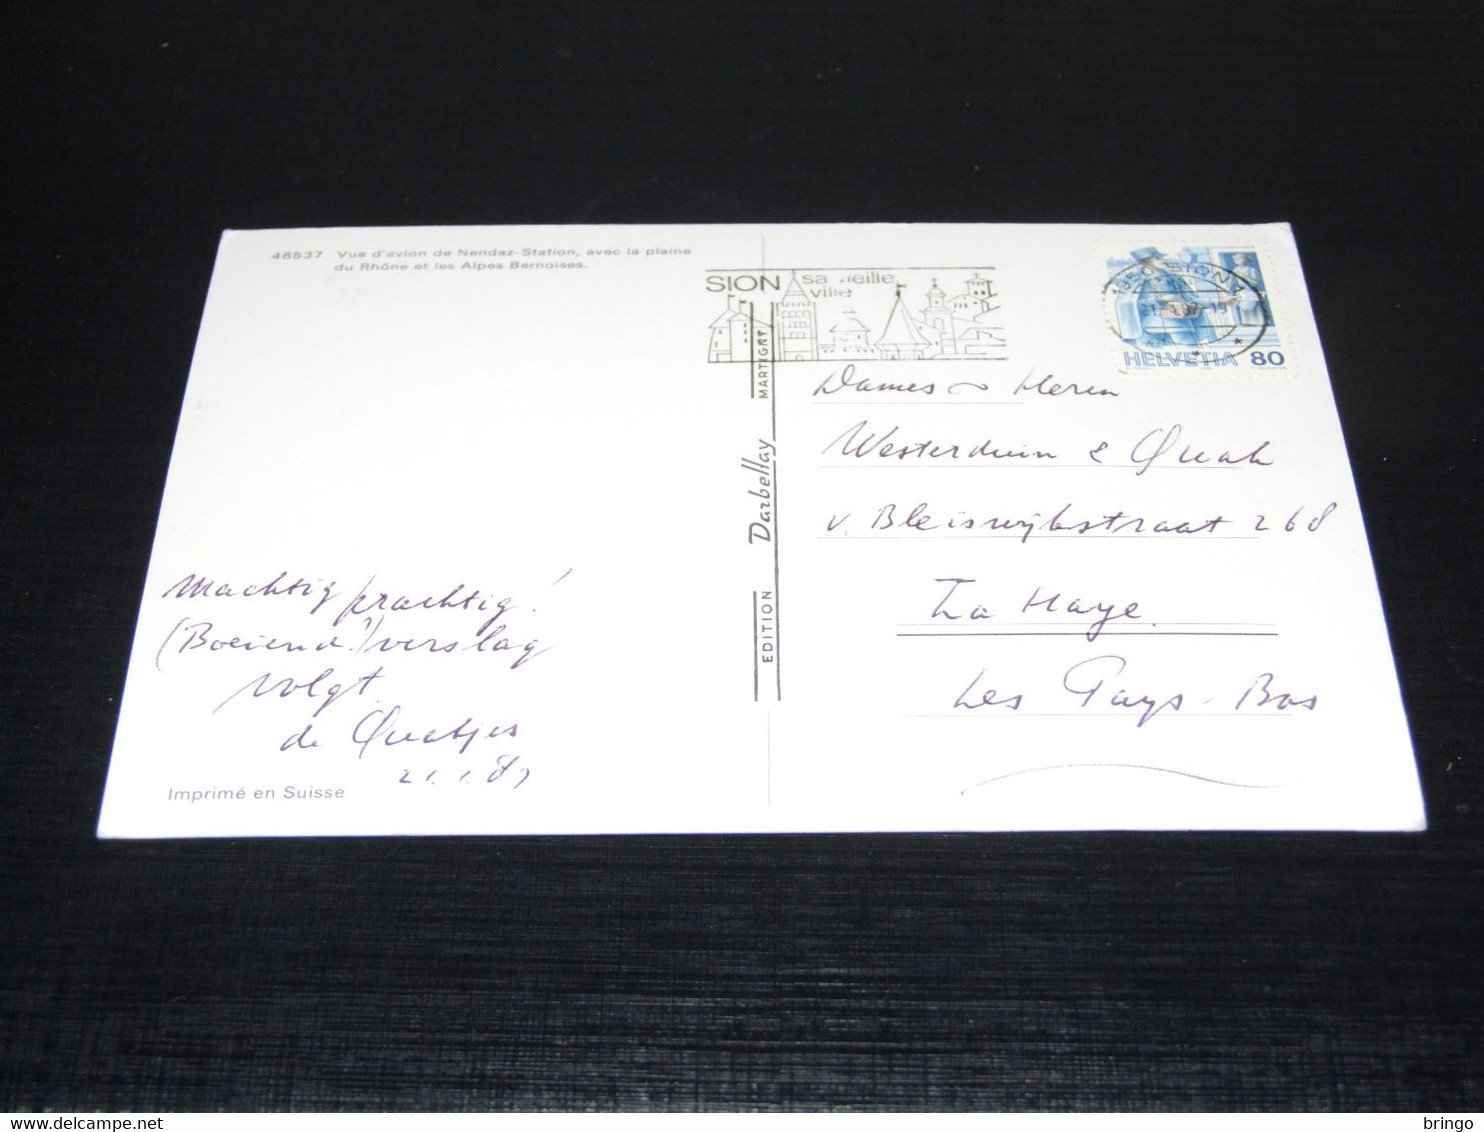 46537 Vue d'avion de Nendaz-Station, avec la plaine
du Rhône et les Alpes Bernoises.
SION sa vieille
ville
1950 SION 1
HELVETIA 80
EDITION Darbellay MARTIGNY
Dames Heren
Westerduin & Quak
v. Bleiswijkstraat 268
La Haye
Les Pays-Bas
Machtig prachtig!
(Boeiend?) verslag
volgt.
de Quakjes
21.1.87
Imprimé en Suisse
bringo